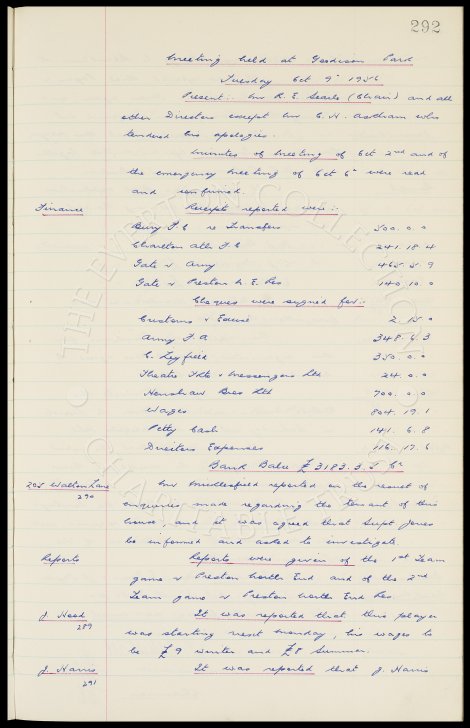 292
Meeting held at Goodison Park
Tuesday Oct 9th 1956
Present:- Mr R. E. Searle (Chair) and all
other Directors except Mr C. H. Askham who
tendered his apologies.
Minutes of Meeting of Oct 2nd and of
the emergency meeting of Oct 6th were read
and confirmed.
Finance Receipts reported were:-
Bury F C re Transfers 500. 0. 0
Charlton Ath F C 241. 18. 4
Gate v Army 465. 5. 9
Gate v Preston N. E. Res 140. 10. 0
Cheques were signed for:-
Customs & Excise 2. 15. 0
Army F. A. 348. 6. 3
C. Leyfield 350. 0. 0
Theatre Tkts & Messengers Ltd 24. 0. 0
Henshaw Bros Ltd 700. 0. 0
Wages 804. 19. 1
Petty Cash 141. 6. 8
Directors Expenses 116. 17. 6
Bank Balce £3183. 3. 5 Cr
205 Walton Lane Mr Micklesfield reported on the result of
290
enquiries made regarding the tenant of this
house, and it was agreed that Supt Jones
be informed and asked to investigate
Reports Reports were given of the 1st Team
game v Preston North End and of the 2nd
Team game v Preston North End Res.
J. Hood It was reported that this player
289
was starting next Monday, his wages to
be £9 winter and £8 Summer.
J. Harris It was reported that J. Harris
291
© THE EVERTON COLLECTION CHARITABLE TRUST